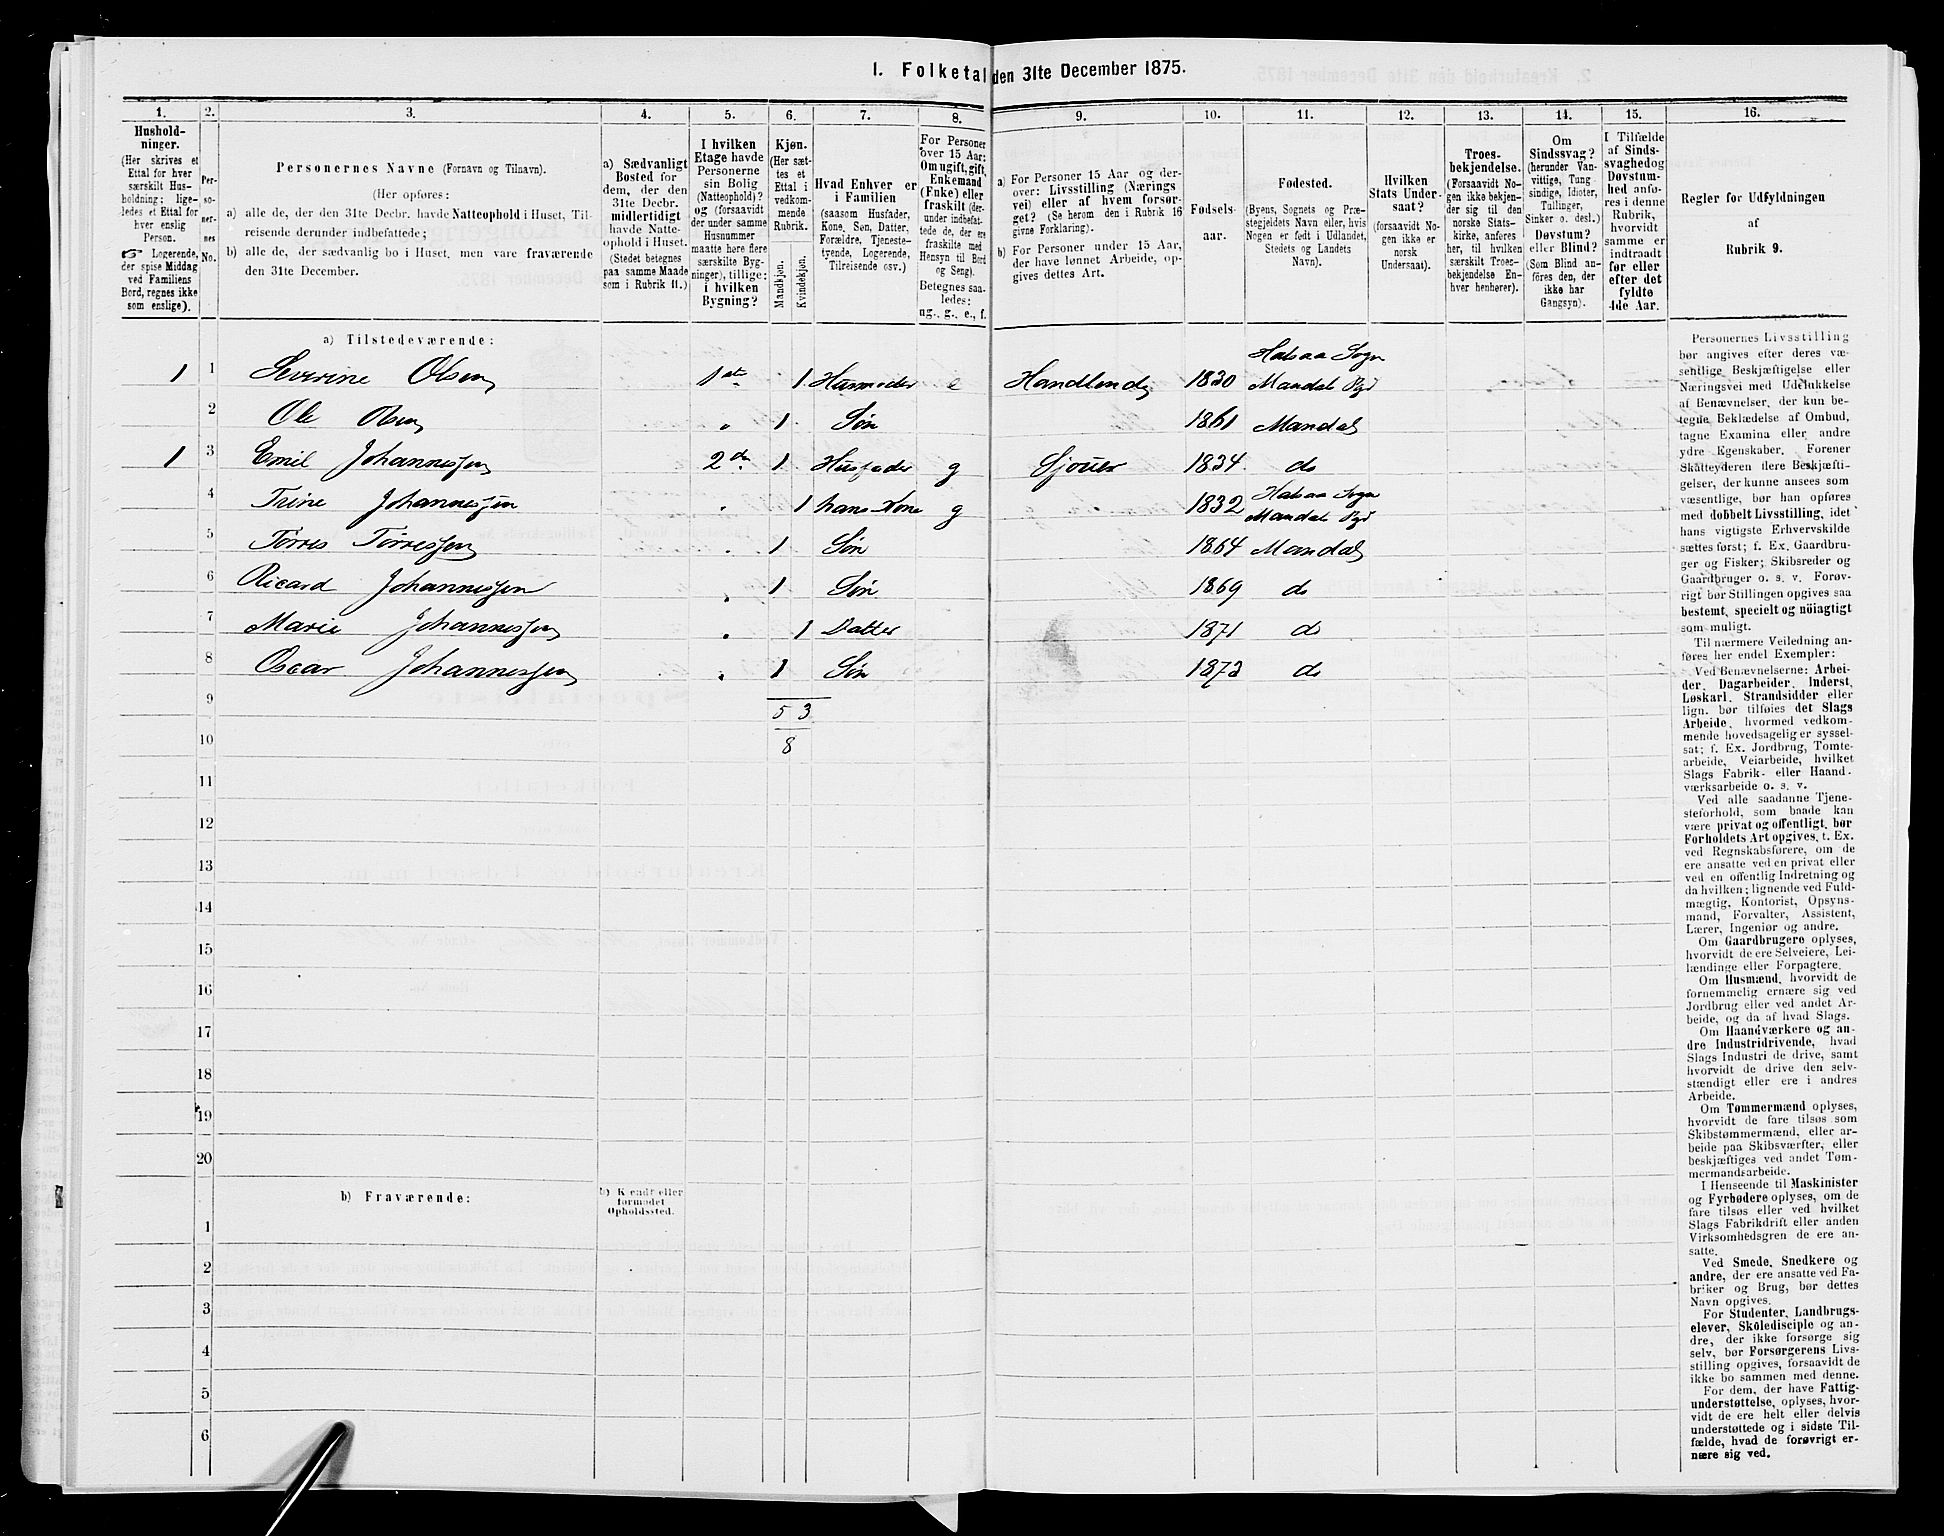 1. Folketal den 31te December 1875.
1. 2. 3. 4. 5. 6. 7. 8. 9. 10. 11. 12. 13. 14. 15. 16.
Hushold-
ninger.
(Her skrives et
Ettal for hver
særskilt Hus-
holdning: lige-
ledes et Ettal for
hver enslig
Person.
☞ Logerende,
der spise Middag
ved Familiens
Bord, regnes ikke
som enslige).
Per-
so-
ner-
nes
No.
Personernes Navne (Fornavn og Tilnavn).
(Her opføres:
a) alle de, der den 31te Decbr. havde Natteophold i Huset, Til-
reisende derunder indbefattede;
b) alle de, der sædvanlig bo i Huset, men vare fraværende
den 31te December.
a) Sædvanligt
Bosted for
dem, der den
31te Decbr.
midlertidigt
havde Natte-
ophold i Huset.
(Stedet betegnes
paa samme Maade
som i Rubrik 11.)
I hvilken
Etage havde
Personerne
sin Bolig
(Natteophold)?
og (forsaavidt
der under samme
Husnummer
maatte høre flere
særskilte Byg-
ninger), tillige:
i hvilken
Bygning?
Kjøn.
(Her sæt-
tes et
Ettal i
vedkom-
mende
Rubrik.
Mandkjøn.
Kvindekjøn.
Hvad Enhver er
i Familien
(saasom Husfader,
Kone, Søn, Datter,
Forældre, Tjeneste-
tyende, Logerende,
Tilreisende osv.)
For Personer
over 15 Aar:
Om ugift, gift,
Enkemand
(Enke) eller
fraskilt (der-
under indbefat-
tede de, der ere
fraskilte med
Hensyn til Bord
og Seng).
Betegnes saa-
ledes:
ug., g., e., f.
a) For Personer 15 Aar og der-
over: Livsstilling (Nærings
vei) eller af hvem forsør-
get? (Se herom den i Rubrik 16
givne Forklaring).
b) For Personer under 15 Aar,
der have lønnet Arbeide, op-
gives dettes Art.
Fødsels-
aar.
Fødested.
(Byens, Sognets og Præ-
stegjeldets Navn eller, hvis
Nogen er født i Udlandet,
Stedets og Landets
Navn).
Hvilken
Stats Under-
saat?
(forsaavidt No-
gen ikke er
norsk
Undersaat).
Troes-
bekjendelse.
(Forsaavidt No-
gen ikke bekjen-
der sig til den
norske Stats-
kirke, anføres
her, til hvilken
særskilt Troes-
bekjendelse En-
hver henhører).
Om
Sindssvag?
(herunder Van-
vittige, Tung
sindige, Idioter,
Tullinger,
Sinker o. desl.)
Døvstum?
eller Blind?
(Som Blind an-
føres den, der
ikke har
Gangsyn).
I Tilfælde
af Sinds-
svaghed og
Døvstum-
hed anfø-
res i denne
Rubrik,
hvorvidt
samme er
indtraadt
før eller
efter det
fyldte
4de Aar.
Regler for Udfyldningen
af
Rubrik 9.
a) Tilstedeværende:
1 1 Severine Olsen 1st 1 Husmoder e Handlende 1830 Halsaa Sogn
Mandal Pgd
2 Ole Olsen " 1 Søn 1861 Mandal
1 3 Emil Johannessen 2den 1 Husfader g Sjouer 1834 do
4 Trine Johannessen " 1 hans Kone g 1832 Halsaa Sogn
Mandal Pgd
5 Torres Torressen " 1 Søn 1864 Mandal
6 Ricard Johannessen " 1 Søn 1869 do
7 Marie Johannessen " 1 Datter 1871 do
8 Oscar Johannessen " 1 Søn 1873 do
9 5 3
10 8
11
12
13
14
15
16
17
18
19
20
b) Fraværende:
b) Kendt eller
formodet
Opholdssted.
1
2
3
4
5
6
Personernes Livsstilling
bør angives efter deres væ-
sentlige Beskjæftigelse eller
Næringsvei med Udelukkelse
af Benævnelser, der kun be-
tegne Beklædelse af Ombud,
tagne Examina eller andre
ydre Egenskaber. Forener
Skatteyderen flere Beskjæfti-
gelser, der kunne ansees som
væsentlige, bør han opføres
med dobbelt Livsstilling, idet
hans vigtigste Erhvervskilde
sættes først; f. Ex. Gaardbru-
ger og Fisker; Skibsreder og
Gaardbruger o. s. v. Forøv-
rigt bør Stillingen opgives saa
bestemt, specielt og nöiagtigt
som muligt.
Til nærmere Veiledning an-
føres her endel Exempler:
Ved Benævnelserne: Arbei-
der, Dagarbeider, Inderst,
Løskarl, Strandsidder eller
lign. bør tilføies det Slags
Arbeide, hvormed vedkom-
mende hovedsagelig er syssel-
sat; f. Ex. Jordbrug, Tomte-
arbeide, Veiarbeide, hvilket
Slags Fabrik- eller Haand-
værksarbeide o. s. v.
Ved alle saadanne Tjene-
steforhold, som baade kan
være privat og offentligt, bør
Forholdets Art opgives, t. Ex.
ved Regnskabsførere, om de
ere ansatte ved en privat eller
ved en offentlig Indretning og
da hvilken; lignende ved Fuld-
mægtig, Kontorist, Opsyns-
mand, Forvalter, Assistent,
Lærer, Ingeniør og andre.
Om Gaardbrugere oplyses,
hvorvidt de ere Selveiere, Lei-
lændinge eller Forpagtere.
Om Husmænd, hvorvidt de
fornemmelig ernære sig ved
Jordbrug eller ved andet Ar-
beide, og da af hvad Slags.
Om Haandværkere og an-
dre Industridrivende, hvad
Slags Industri de drive, samt
hvorvidt de drive den selv-
stændigt eller ere i andres
Arbeide.
Om Tømmermænd oplyses,
hvorvidt de fare tilsøs som
Skibstømmermænd, eller ar-
beide paa Skibsværfter, eller
beskjæftiges ved andet Tøm-
mermandsarbeide.
I Henseende til Maskinister
og Fyrbødere oplyses, om de
fare tilsøs eller ved hvilket
Slags Fabrikdrift eller anden
Virksomhedsgren de ere an-
satte.
Ved Smede, Snedkere og
andre, der ere ansatte ved Fa-
briker og Brug, bør dettes
Navn opgives.
For Studenter, Landbrugs-
elever, Skoledisciple og an-
dre, der ikke forsørge sig
selv, bør Forsørgerens Livs-
stilling opgives, forsaavidt de
ikke bo sammen med denne.
For dem, der have Fattig-
understøttelse, oplyses, hvor-
vidt de ere helt eller delvis
understøttede og i sidste Til-
fælde, hvad de forøvrigt er-
nære sig ved.